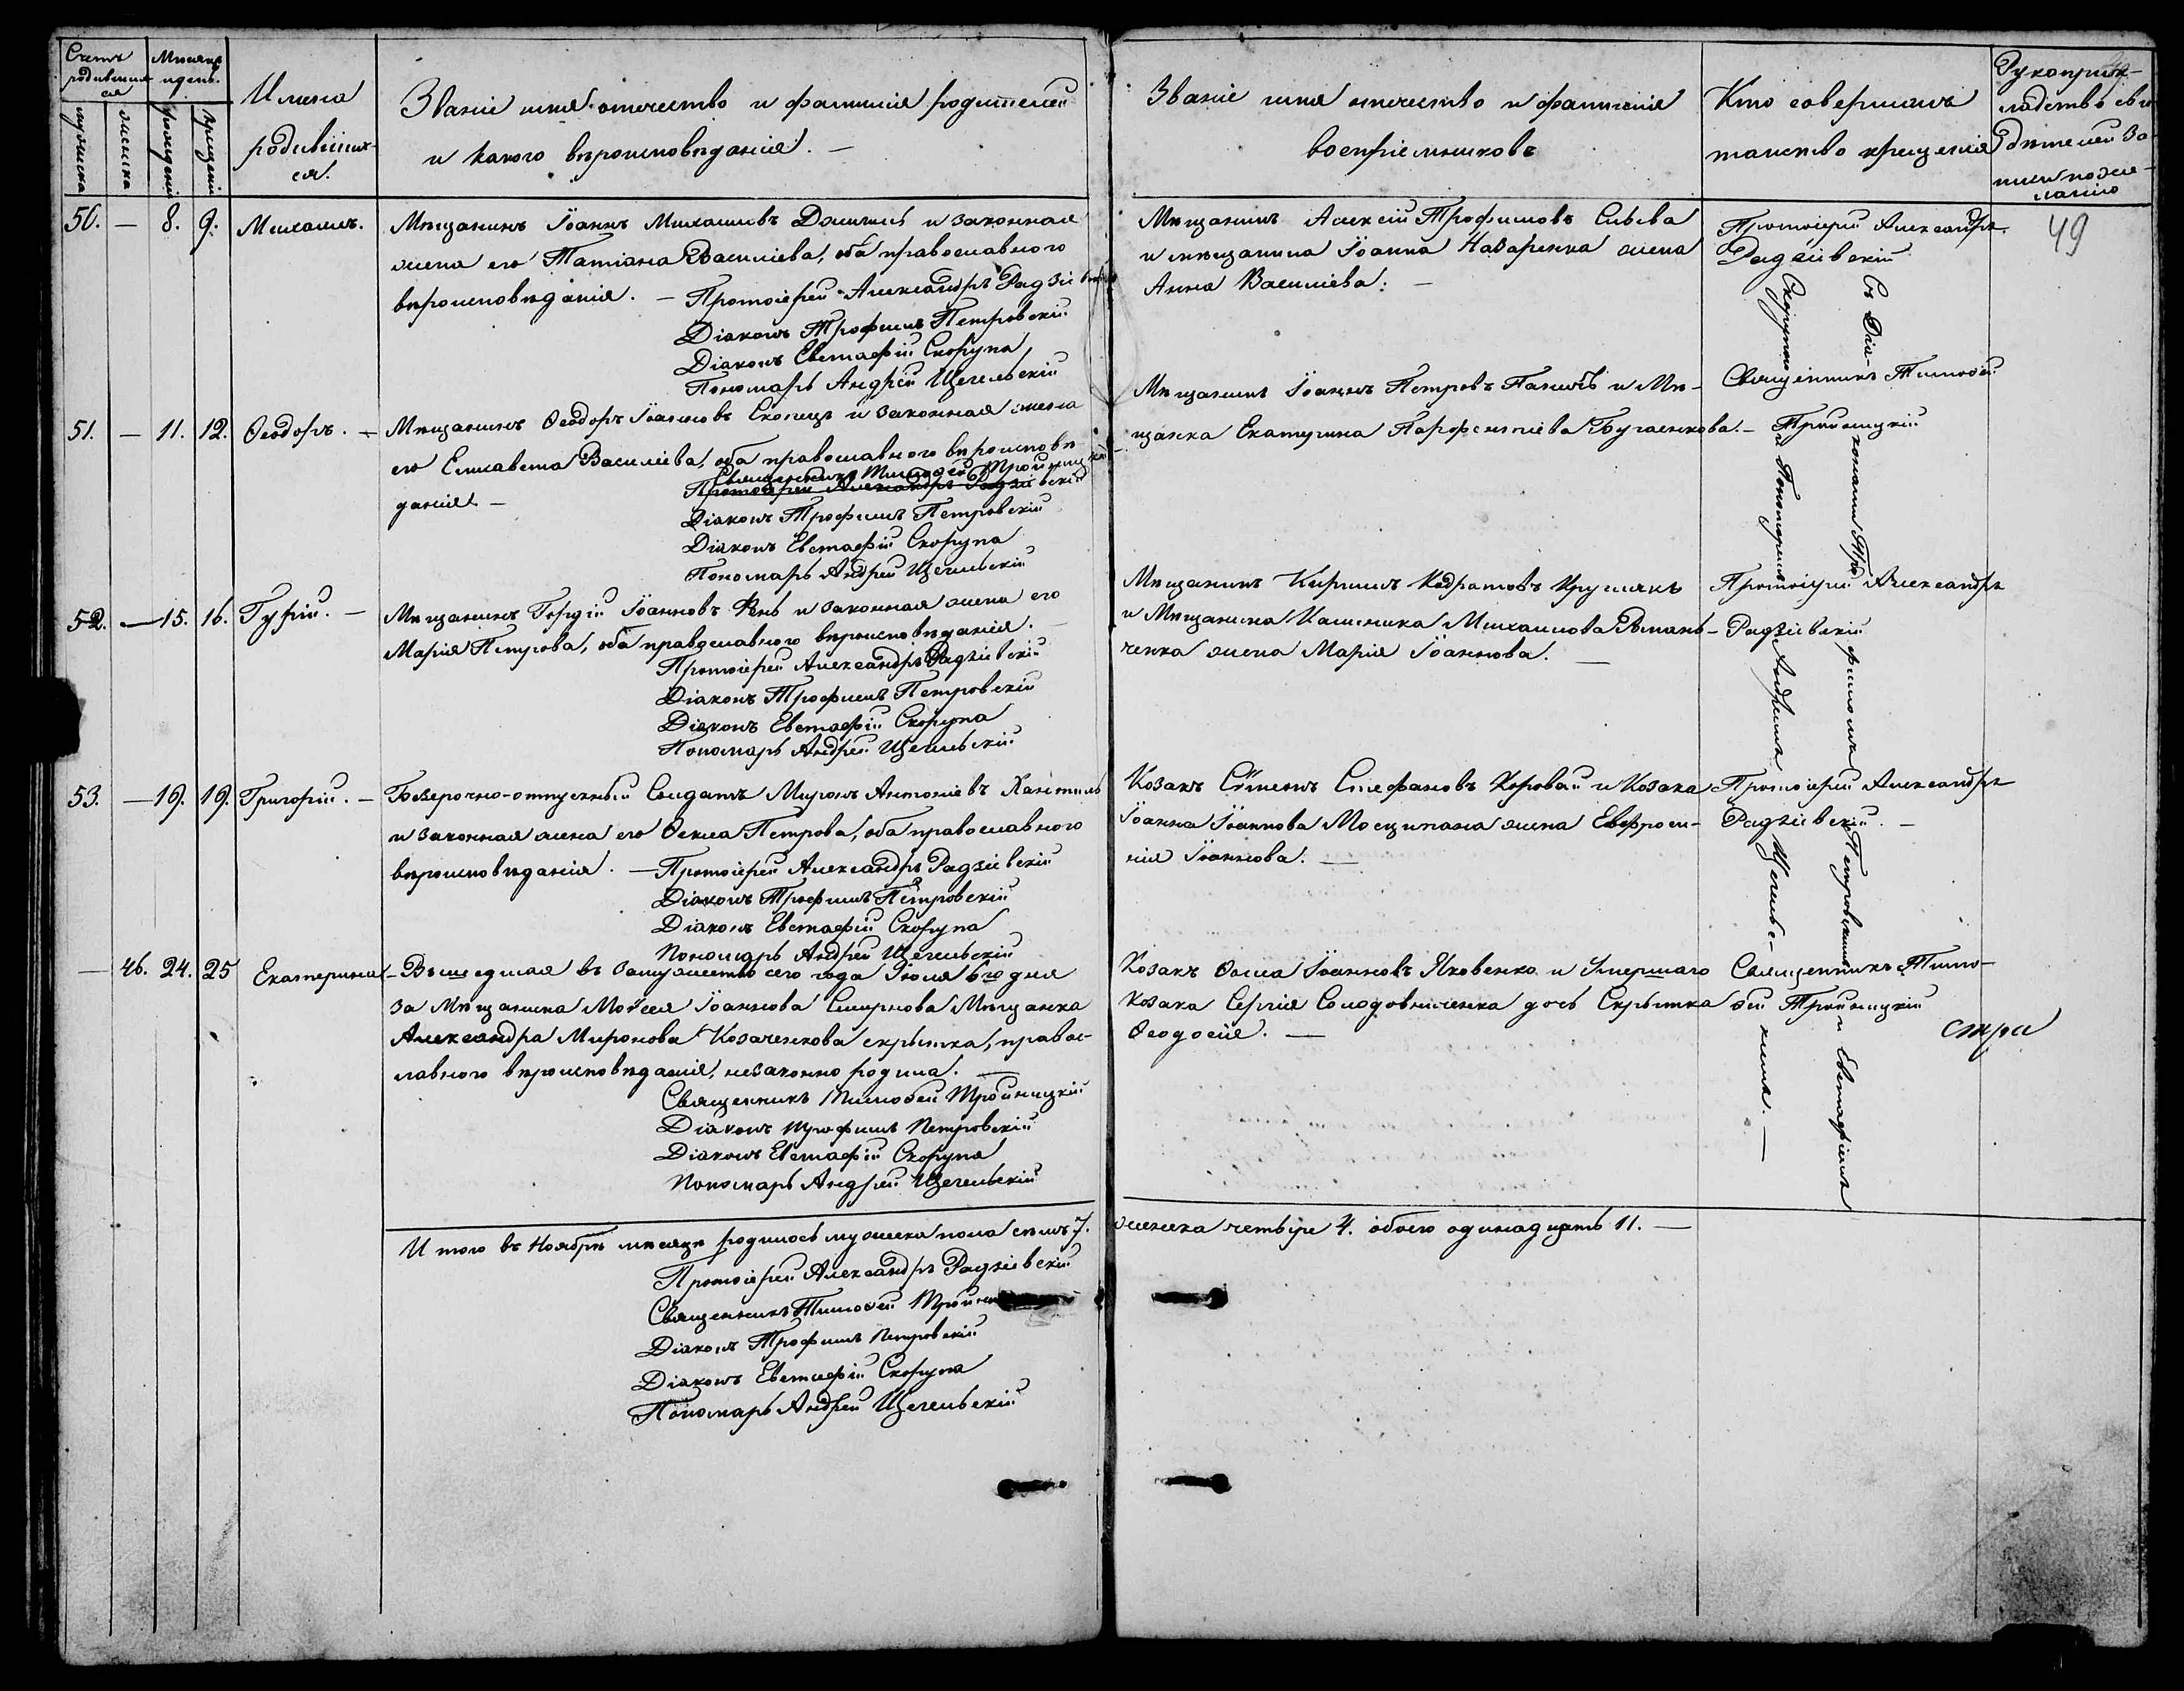 Счетъ родившихся
мужеска
женска
Мѣсяцъ и день.
рожденія
крещенія
Имена
родивших-
ся.
Званіе имя отечество и фамилія родителей
и какого вѣроисповѣданія. —
Званіе имя отечество и фамилія
воспріемниковъ
Кто совершалъ
таинство крещенія
Рукоприк-
ладство сви-
дѣтелей за-
писи по же-
ланію
49
50. — 8. 9. Михаилъ.
Мѣщанинъ Іоаннъ Михаиловъ и законная
жена его Татіана Василіева, оба православного
вѣроисповѣданія. — Протоіерей Александръ Радзіевскій
Діаконъ Трофимъ Петровскій
Діаконъ Евстафій Скорупа
Пономарь Андрей Щегельскій
Мѣщанинъ Алексій Трофимовъ
и мѣщанина Іоанна Назаренка жена
Анна Василіева. —
Протоіерей Александръ
Радзіевскій
51. — 11. 12. Ѳеодоръ. —
Мѣщанинъ Ѳеодоръ Іоанновъ Скопецъ и законная жена
его Елисавета Василіева, оба православного вѣроисповѣ-
данія. —
Священникъ Тимоѳей Тройницкій
Протоіерей Александръ Радзіевскій
Діаконъ Трофимъ Петровскій
Діаконъ Евстафій Скорупа
Пономарь Андрей Щегельскій
Мѣщанинъ Іоаннъ Петровъ и Мѣ-
щанка Екатерина Парфентіева Бугаенкова. —
Священникъ Тимоѳей
Тройницкій
52. — 15. 16. Гурій. —
Мѣщанинъ Гордій Іоанновъ и законная жена его
Марія Петрова, оба православного вѣроисповѣданія. —
Протоіерей Александръ Радзіевскій
Діаконъ Трофимъ Петровскій
Діаконъ Евстафій Скорупа
Пономарь Андрей Щегельскій
Мѣщанинъ Кириллъ Кодратовъ
и Мѣщанина Калиника Михаилова Романь-
ченка жена Марія Іоаннова. —
Протоіерей Александръ
Радзіевскій
53. — 19. 19. Григорій. —
Безсрочно-отпускный Солдатъ Миронъ Антоніевъ
и законная жена его Ѳекла Петрова, оба православного
вѣроисповѣданія. — Протоіерей Александръ Радзіевскій
Діаконъ Трофимъ Петровскій
Діаконъ Евстафій Скорупа
Пономарь Андрей Щегельскій
Козакъ Сѵмеонъ Стефановъ Коровай и Козака
Іоанна Іоаннова Мосципана жена Евфроси-
нія Іоаннова. —
Протоіерей Александръ
Радзіевскій. —
— 46. 24. 25 Екатерина
Вышедшая въ замужество сего года Іюля 6го дня
за Мѣщанина Моѵсея Іоаннова Смирнова Мѣщанка
Александра Миронова Козаченкова скрытка, правос-
лавного вѣроисповѣданія, незаконно родила. —
Священникъ Тимоѳей Тройницкій
Діаконъ Трофимъ Петровскій
Діаконъ Евстафій Скорупа
Пономарь Андрей Щегельскій
Козакъ Ѳома Іоанновъ Яковенко и Умершаго
Козака Сергія Солодовниченка дочь Скрытка
Ѳеодосія. —
Священникъ Тимо-
ѳей Тройницкій
Съ Діа-
конами Тро-
фимомъ
Петровскимъ
и Евстафіемъ
Скорупою
и Пономаремъ
Андреемъ
Щегельс-
кимъ. —
И того въ Ноябрѣ мѣсяцѣ родилось мужеска пола семъ 7. женска четыре 4. обоего одинадцать 11. —
Протоіерей Александръ Радзіевскій
Священникъ Тимоѳей
Діаконъ Трофимъ Петровскій
Діаконъ Евстафій Скорупа
Пономарь Андрей Щегельскій